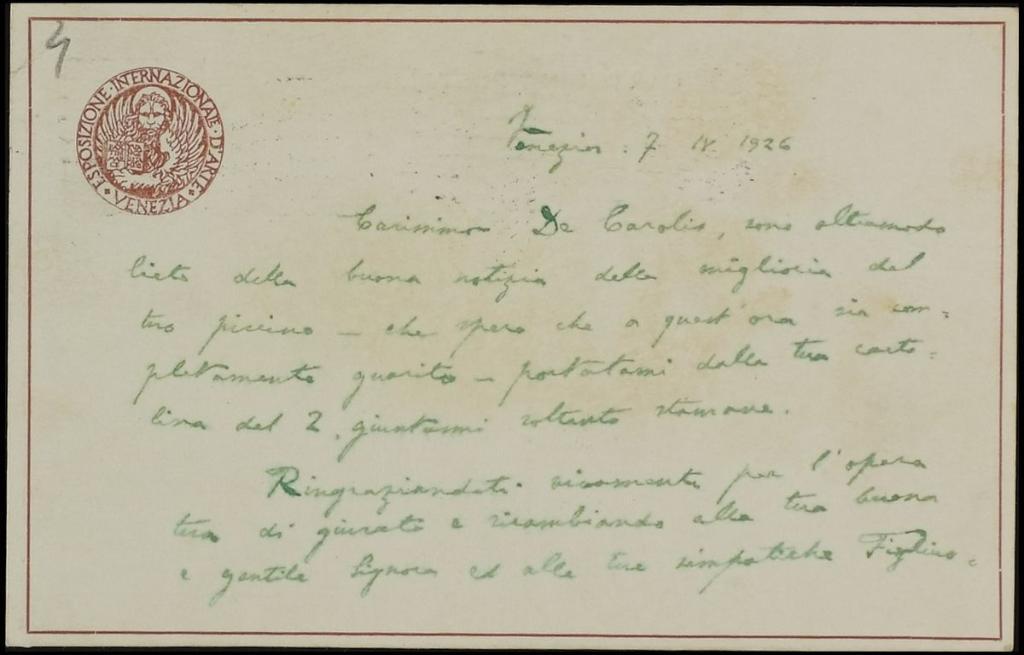 4
ESPOSIZIONE · INTERNAZIONALE · D'ARTE · VENEZIA ·
Venezia : 7 IV 1926
Carissimo De Carolis, sono oltremodo
lieto della buona notizia della miglioria del
tuo piccino – che spero che a quest'ora sia com=
pletamente guarito – portatami dalla tua carto=
lina del 2, giuntami soltanto stamane.
Ringraziandoti vivamente per l'opera
tua di giurato e ricambiando alla tua buona
e gentile Signora ed alle tue simpatiche Figliuo=